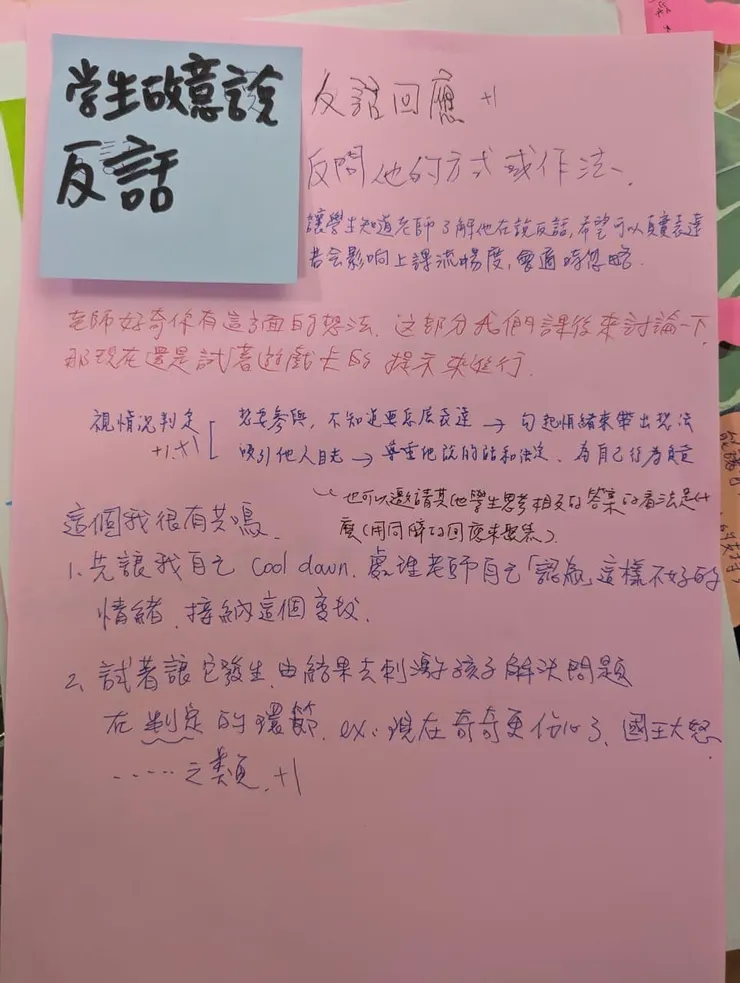 学生故意說
反話
反話回應 +1
反問他的方式或作法、
讓學生知道老師了解他在說反話,希望可以真實表達
若会影响上課流暢度,會適時忽略.
老師好奇你有這方面的想法. 这部分我們課後來討論一下,
那現在還是試著遊戲卡的提示來進行.
視情況判定
+1.+1
想要參與, 不知道要怎麼表達 → 勾起情緒來帶出想法
吸引他人目光 → 尊重他說的話和決定、為自己行為負責
也可以邀請其他學生思考相反的答案的看法是什
麼(用同儕的回應來發表).
這個我很有共鳴.
1. 先讓我自己 cool down. 處理老師自己「認為」這樣不好的
情緒. 接納這個變數.
2. 試著讓它發生,由結果去刺激孩子解決問題
在判定的環節. ex: 現在奇奇更傷心了、國王大怒
......之類. +1